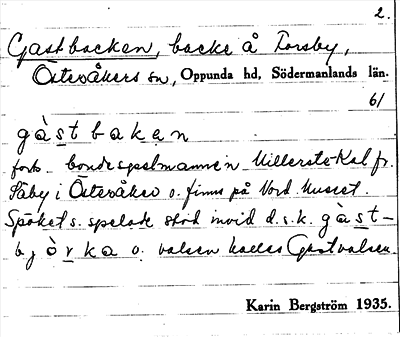 2.
Gastbacken, backe å Forsby,
Österåkers sn, Oppunda hd, Södermanlands län.
61
gàstbaken
bondespelmannen Millersta-Kal fr.
Säby i Österåker o. finns på Nord. Museet.
Spöket s. spelade stod invid d. s. k. gàst-
bjòrka o. valsen kallas Gastvalsen.
Karin Bergström 1935.